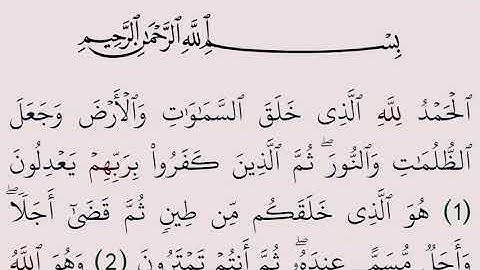 بِسْمِ ٱللَّهِ ٱلرَّحْمَٰنِ ٱلرَّحِيمِ
ٱلْحَمْدُ لِلَّهِ ٱلَّذِى خَلَقَ ٱلسَّمَٰوَٰتِ وَٱلْأَرْضَ وَجَعَلَ
ٱلظُّلُمَٰتِ وَٱلنُّورَ ۖ ثُمَّ ٱلَّذِينَ كَفَرُوا۟ بِرَبِّهِمْ يَعْدِلُونَ
(1) هُوَ ٱلَّذِى خَلَقَكُم مِّن طِينٍ ثُمَّ قَضَىٰٓ أَجَلًا ۖ
وَأَجَلٌ مُّسَمًّى عِندَهُۥ ۖ ثُمَّ أَنتُمْ تَمْتَرُونَ (2) وَهُوَ ٱللَّهُ